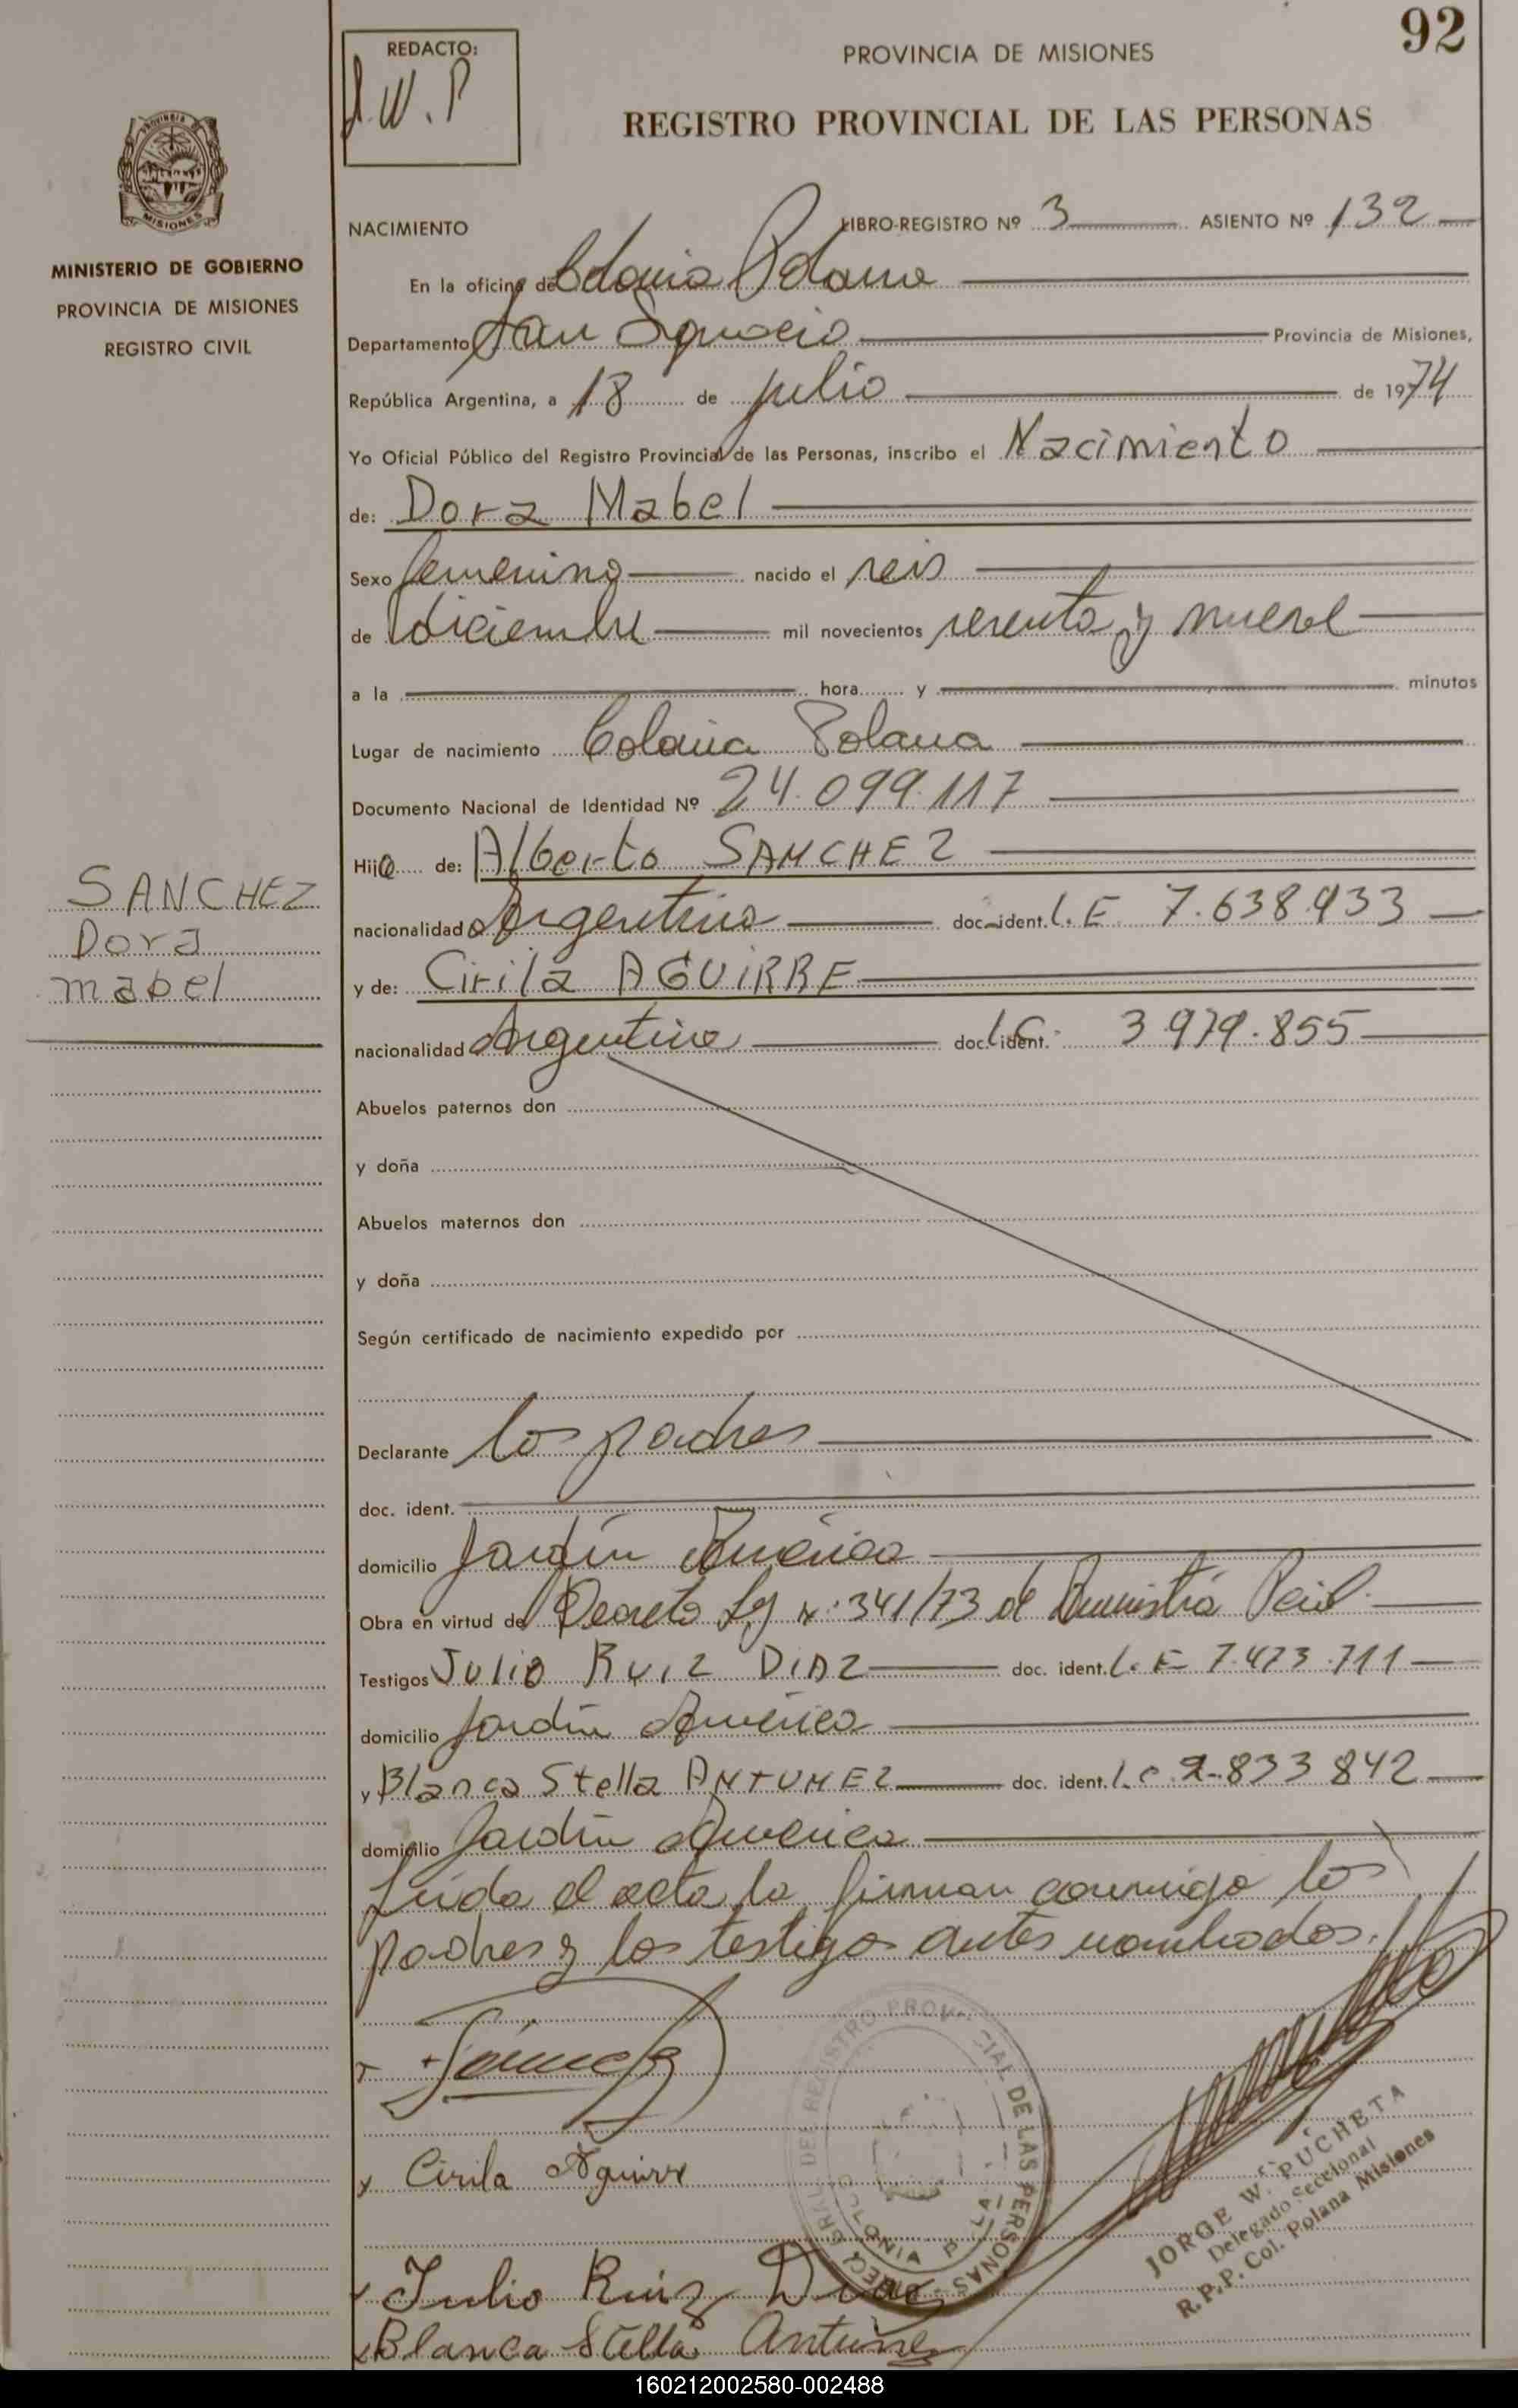 92
REDACTO:
J.W.P
PROVINCIA DE MISIONES
REGISTRO PROVINCIAL DE LAS PERSONAS
MISIONES
MINISTERIO DE GOBIERNO
PROVINCIA DE MISIONES
REGISTRO CIVIL
NACIMIENTO LIBRO-REGISTRO Nº 3 ASIENTO Nº 132
En la oficina de Colonia Polana
Departamento San Ignacio Provincia de Misiones,
República Argentina, a 18 de julio de 1974
Yo Oficial Público del Registro Provincial de las Personas, inscribo el Nacimiento
de: Dora Mabel
Sexo femenino nacido el seis
de diciembre mil novecientos sesenta y nueve
a la hora y minutos
Lugar de nacimiento Colonia Polana
Documento Nacional de Identidad Nº 24.099.117
Hija de: Alberto SANCHEZ
SANCHEZ
Dora
mabel
nacionalidad Argentina doc. ident. L.E. 7.638.933
y de: Cirila AGUIRRE
nacionalidad Argentina doc. ident. L.C. 3.979.855
Abuelos paternos don
y doña
Abuelos maternos don
y doña
Según certificado de nacimiento expedido por
Declarante los padres
doc. ident.
domicilio Jardín América
Obra en virtud de Decreto Ley nº 341/73 de
Testigos Julio RUIZ DIAZ doc. ident. L.E 7.473.711
domicilio Jardín América
y Blanca Stella ANTUNEZ doc. ident. L.C 2.833.842
domicilio Jardín América
Leída el acta la firman conmigo los
padres y los testigos antes nombrados.
Cirila Aguirre
Julio Ruiz Diaz
Blanca Stella Antunez
REGISTRO PROVINCIAL DE LAS PERSONAS
COLONIA POLANA
JORGE W. PUCHETA
Delegado Seccional
R.P.P. Col. Polana Misiones
160212002580-002488